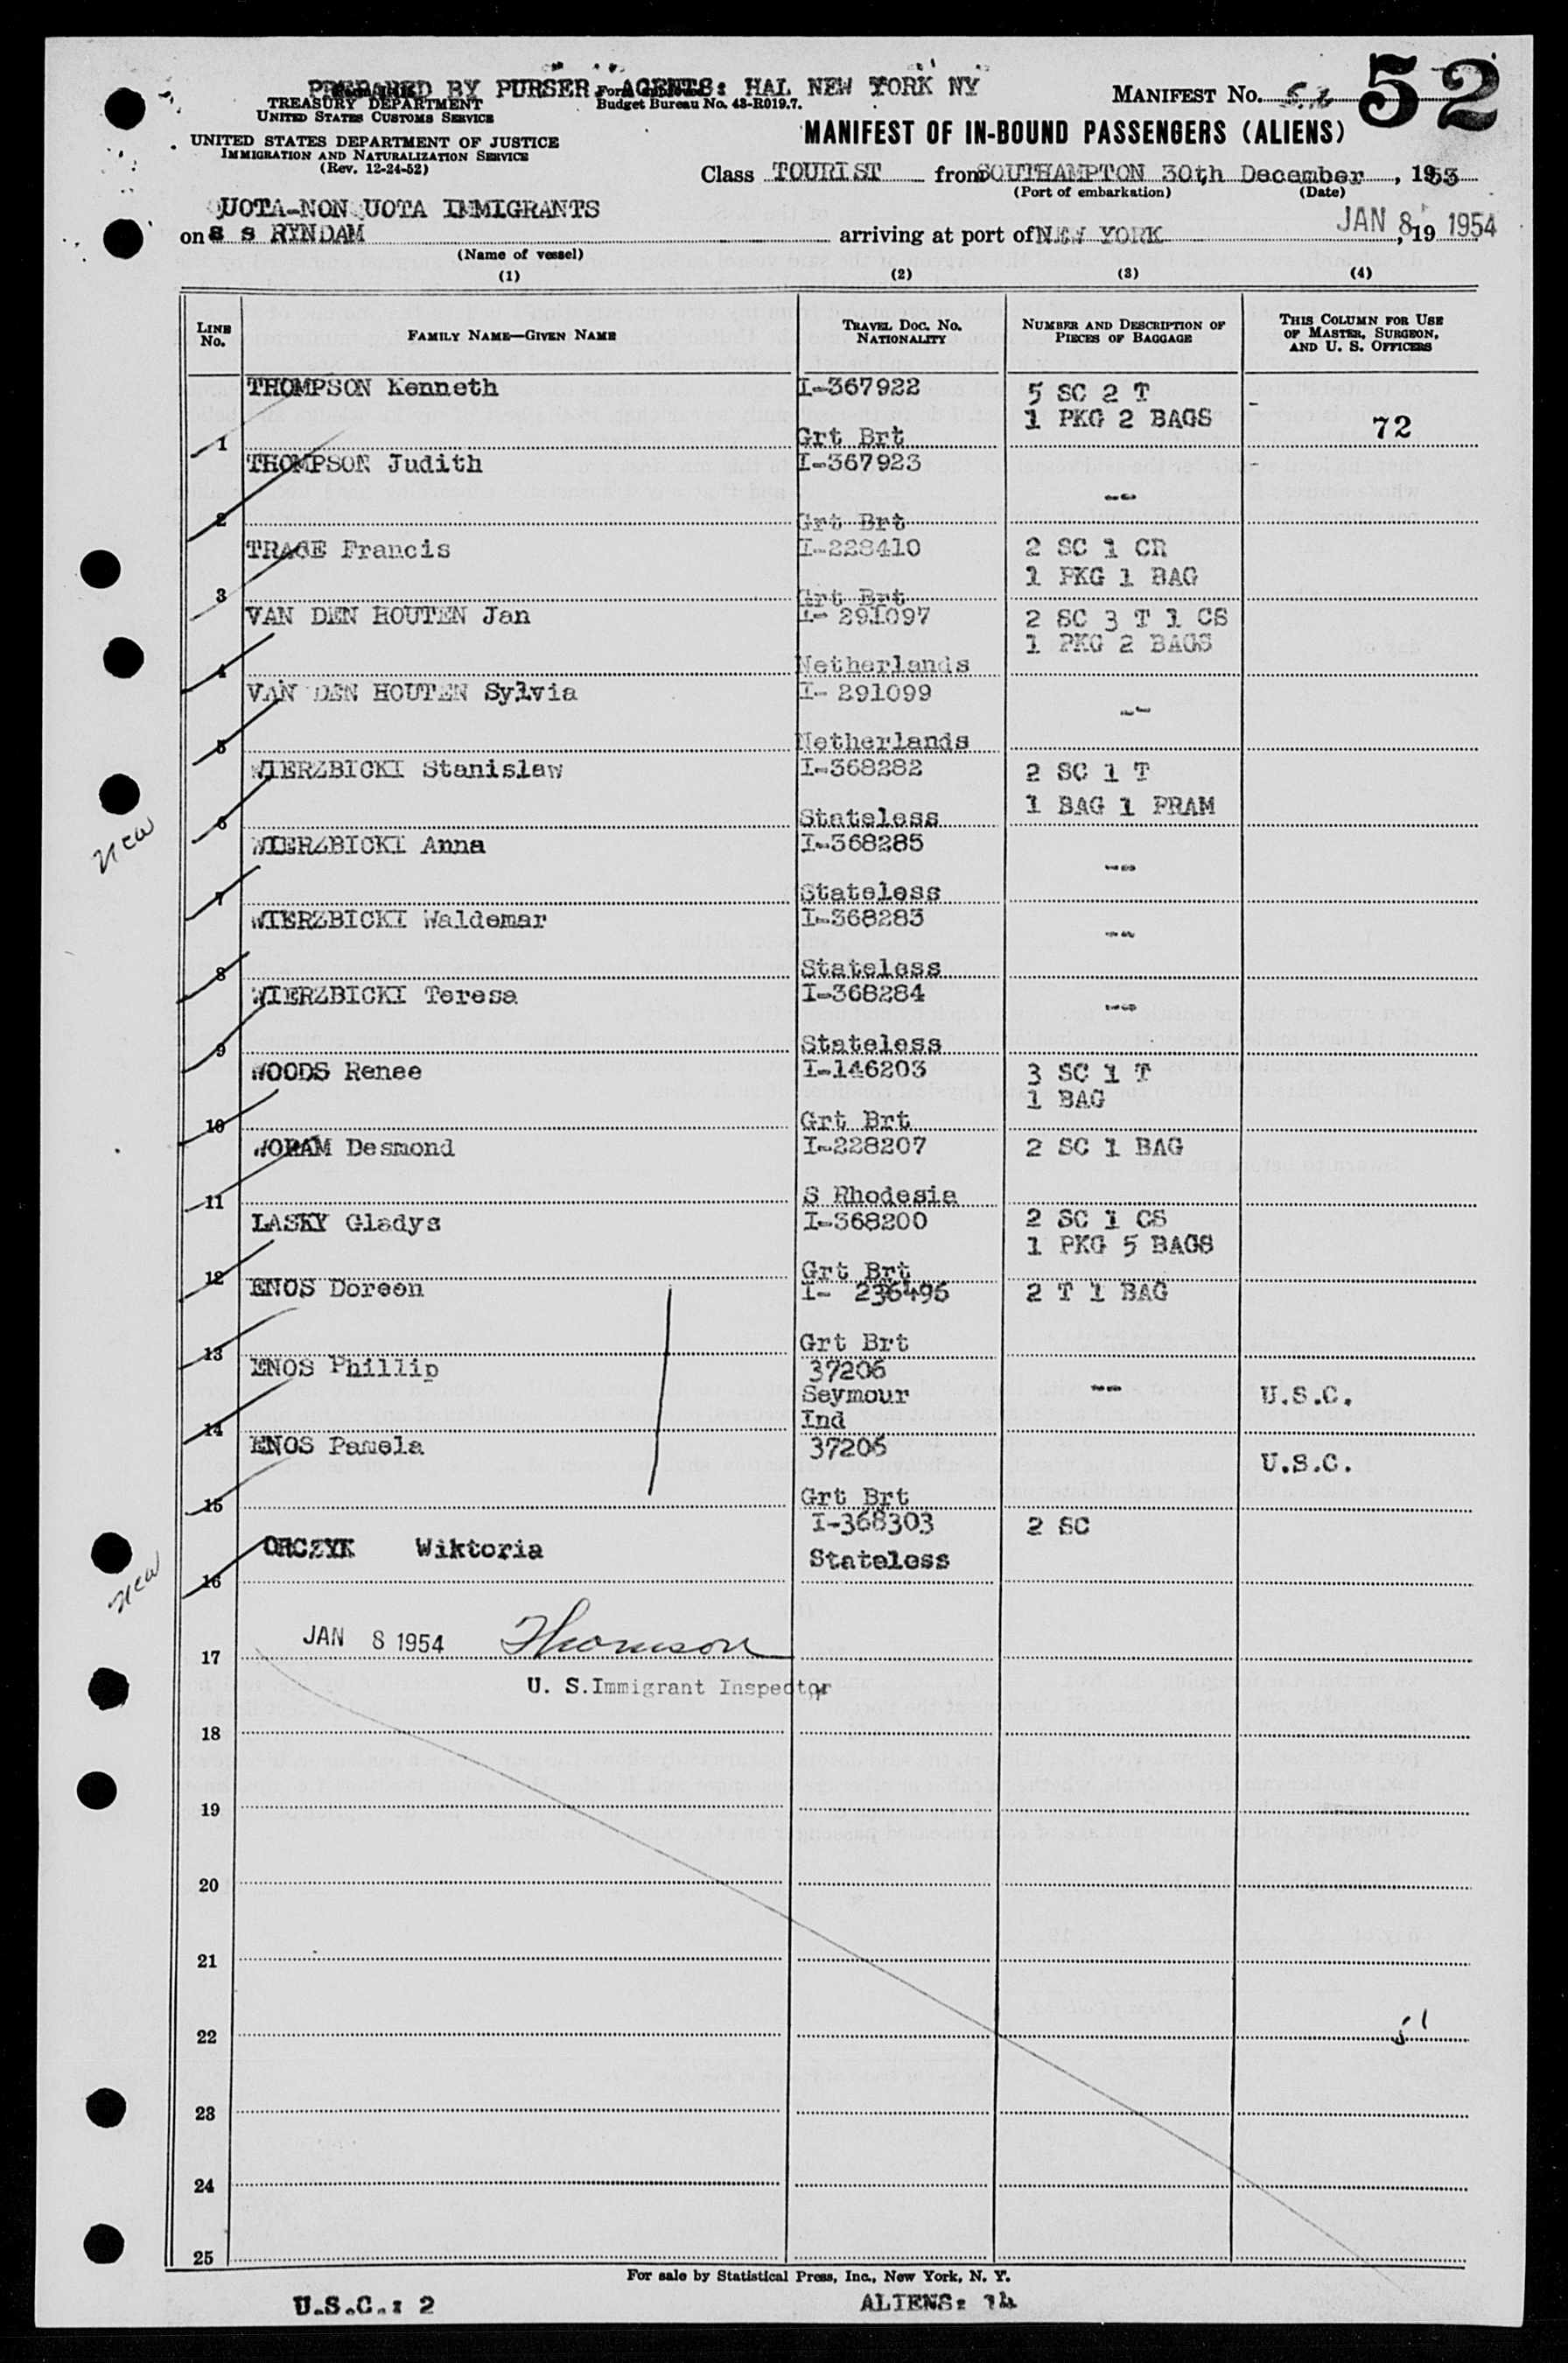 PREPARED BY PURSER AGENTS: HAL NEW YORK NY
TREASURY DEPARTMENT
UNITED STATES CUSTOMS SERVICE
Budget Bureau No. 43-R019.7.
MANIFEST No. 52
52
UNITED STATES DEPARTMENT OF JUSTICE
IMMIGRATION AND NATURALIZATION SERVICE
(Rev. 12-24-52)
MANIFEST OF IN-BOUND PASSENGERS (ALIENS)
Class TOURIST from SOUTHAMPTON 30th December, 1953
(Port of embarkation) (Date)
QUOTA-NON QUOTA IMMIGRANTS
on s s RYNDAM arriving at port of NEW YORK JAN 8, 19 1954
(Name of vessel)
(1) (2) (3) (4)
LINE No. FAMILY NAME—GIVEN NAME TRAVEL DOC. No. NATIONALITY NUMBER AND DESCRIPTION OF PIECES OF BAGGAGE THIS COLUMN FOR USE OF MASTER, SURGEON, AND U. S. OFFICERS
THOMPSON Kenneth I-367922 5 SC 2 T -
1 PKG 2 BAGS 72
1 Grt Brt
THOMPSON Judith I-367923 -
--
2 Grt Brt
TRACE Francis I-228410 2 SC 1 CR
1 PKG 1 BAG
3 Grt Brt
VAN DEN HOUTEN Jan I- 291097 2 SC 3 T 1 CS
1 PKG 2 BAGS
4 Netherlands
VAN DEN HOUTEN Sylvia I- 291099
--
5 Netherlands
WIERZBICKI Stanislaw I-368282 2 SC 1 T
1 BAG 1 PRAM
6 Stateless
WIERZBICKI Anna I-368285
--
7 Stateless
WIERZBICKI Waldemar I-368283
--
8 Stateless
WIERZBICKI Teresa I-368284
--
9 Stateless
WOODS Renee I-146203 3 SC 1 T
1 BAG
10 Grt Brt
WORAM Desmond I-228207 2 SC 1 BAG
11 S Rhodesia
LASKY Gladys I-368200 2 SC 1 CS
1 PKG 5 BAGS
12 Grt Brt
ENOS Doreen I- 236495 2 T 1 BAG
13 Grt Brt
ENOS Phillip 37206
Seymour -- U.S.C.
14 Ind
ENOS Pamela 37206
U.S.C.
15 Grt Brt
I-368303 2 SC
ORCZYK Wiktoria Stateless
16
new
new
JAN 8 1954 Thomson
17
U. S. Immigrant Inspector
18
19
20
21
22
23
24
25
For sale by Statistical Press, Inc., New York, N. Y.
U.S.C.: 2 ALIENS: 14